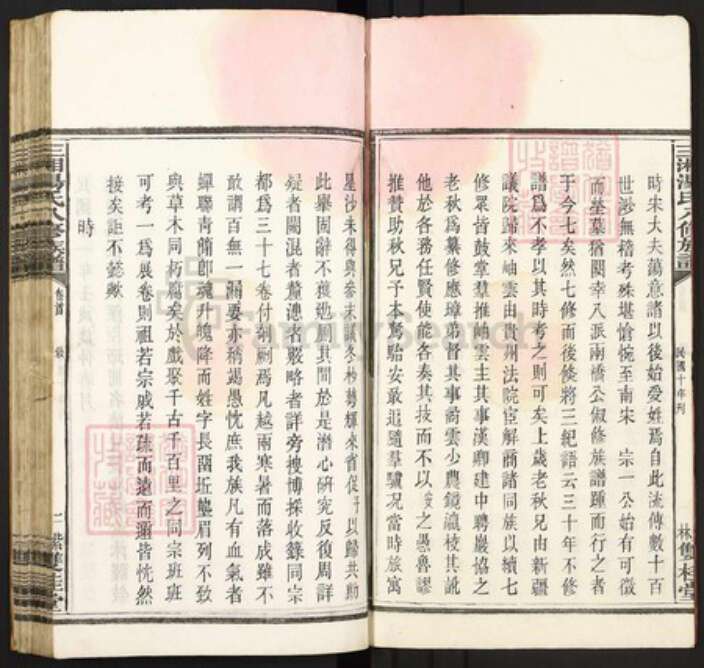 三湘湯氏八修族譜
民國十年刋
林雙桂堂
時宋大夫蕩意諸以後始愛姓焉自此流傳數十百
世渺無稽考殊堪愴惋至南宋 宗一公始有可徵
而塋墓猶闕幸八派兩橋公俶修族譜踵而行之者
于今七矣然七修而後倏將三紀語云三十年不修
譜爲不孝以其時考之則可矣上歲老秋兄由新疆
議院歸來岫雲由貴州法院宦解薾諸同族以續七
修眾皆鼓掌羣推岫雲主其事漢卿建中聘巖協之
老秋爲纂修應璋弟督其事蔚雲少農鏡瀛校其訛
他於各務任賢使能各奏其技而不以 之愚魯謬
推贊助秋兄予本駑駘安敢追隨羣驥況當時族寓
星沙未得與參末議冬杪勢輝來省促予以歸共勷
此舉固辭不獲廼周其間於是潛心硏究反復周詳
疑者闕混者釐漶者殺略者詳旁搜博採收錄同宗
都爲三十七卷付剞劂焉凡越兩寒暑而落成雖不
敢謂百無一漏要亦稍竭愚忱庶我族凡有血氣者
蟬聯青簡卽魂升魄降而姓字長畱近髖眉列不致
與草木同朽腐矣於戲聚千古千百里之同宗班班
可考一爲展卷則祖若宗戚若疏而遠而邇皆恍然
接矣詎不懿歟
時
三湘湯氏八修族譜
卷首
敘
二
雙桂堂
FamilySearch